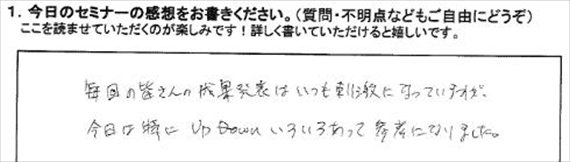 1. 今日のセミナーの感想をお書きください。（質問・不明点などもご自由にどうぞ）
ここを読ませていただくのが楽しみです！詳しく書いていただけると嬉しいです。
毎回の皆さんの成果発表はいつも刺激になっていますが、
今日は特に Up Down いろいろあって参考になりました。